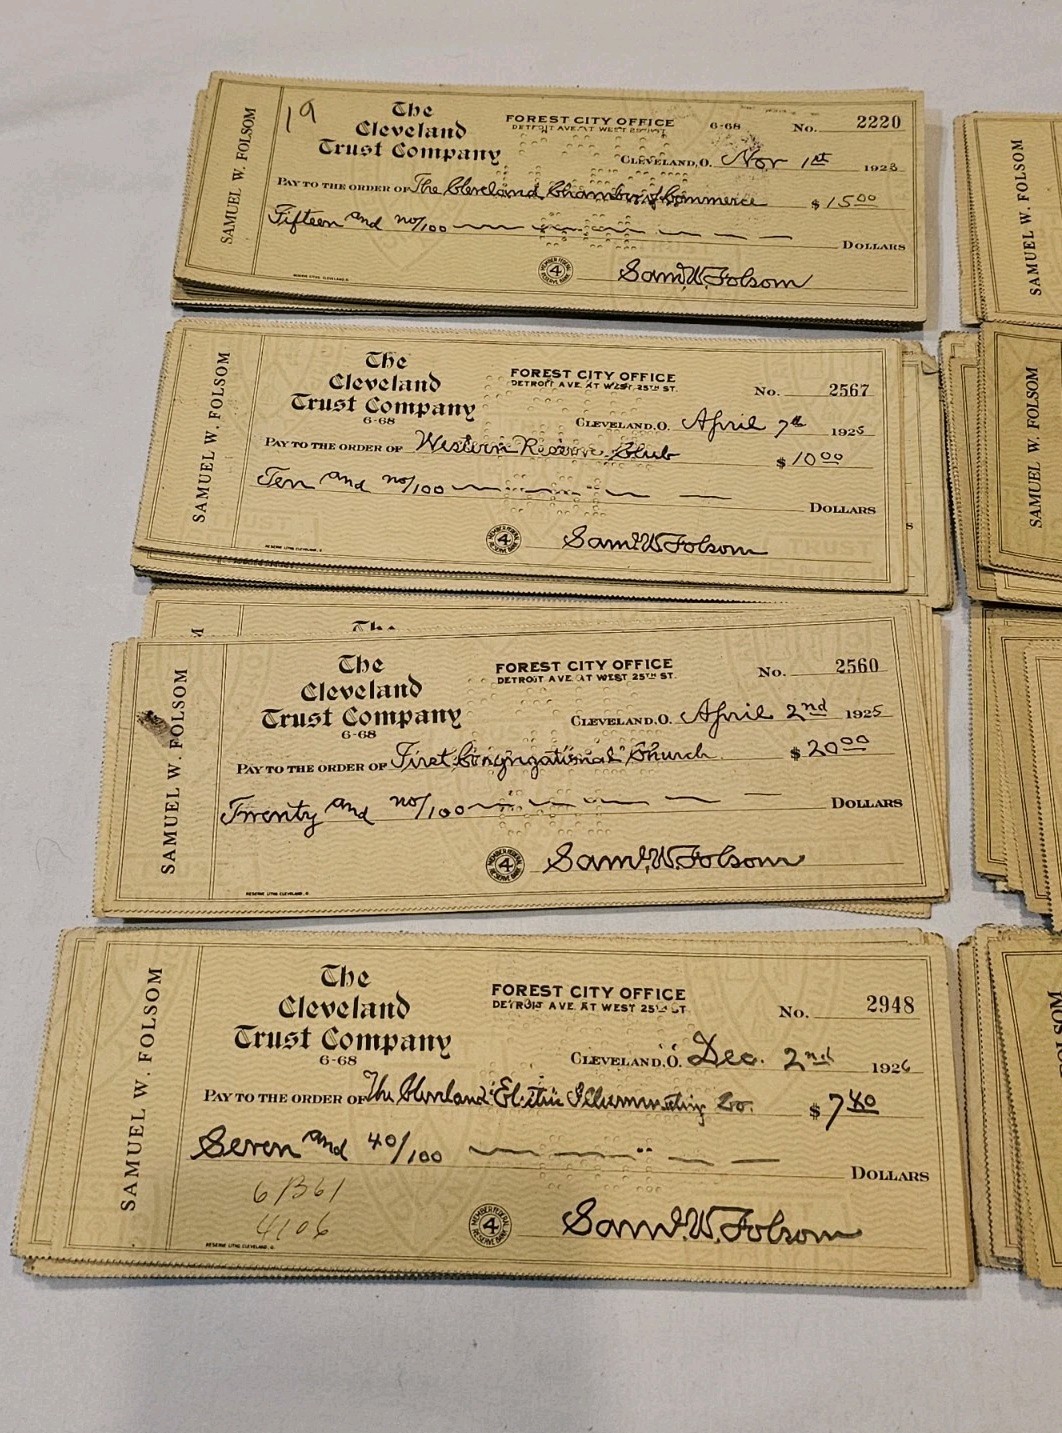 SAMUEL W. FOLSOM
19
The
Cleveland
Trust Company
FOREST CITY OFFICE
DETROIT AVE. AT WEST 25TH ST.
6-68
No. 2220
CLEVELAND, O. Nov 1st 1923
PAY TO THE ORDER OF The Cleveland Chamber of Commerce $15 00
Fifteen and no/100 DOLLARS
MEMBER FEDERAL RESERVE BANK 4
Saml. W. Folsom
RESERVE LITHO. CLEVELAND, O.
SAMUEL W. FOLSOM
The
Cleveland
Trust Company
6-68
FOREST CITY OFFICE
DETROIT AVE. AT WEST 25TH ST.
No. 2567
CLEVELAND, O. April 7th 1925
PAY TO THE ORDER OF Western Reserve Club $10 00
Ten and no/100 DOLLARS
MEMBER FEDERAL RESERVE BANK 4
Saml. W. Folsom
RESERVE LITHO. CLEVELAND, O.
The
SAMUEL W. FOLSOM
The
Cleveland
Trust Company
6-68
FOREST CITY OFFICE
DETROIT AVE. AT WEST 25TH ST.
No. 2560
CLEVELAND, O. April 2nd 1925
PAY TO THE ORDER OF First Congregational Church $20 00
Twenty and no/100 DOLLARS
MEMBER FEDERAL RESERVE BANK 4
Saml. W. Folsom
RESERVE LITHO. CLEVELAND, O.
SAMUEL W. FOLSOM
The
Cleveland
Trust Company
6-68
FOREST CITY OFFICE
DETROIT AVE. AT WEST 25TH ST.
No. 2948
CLEVELAND, O. Dec. 2nd 1926
PAY TO THE ORDER OF The Cleveland Electric Illuminating Co. $7 40
Seven and 40/100 DOLLARS
6/361
4106
MEMBER FEDERAL RESERVE BANK 4
Saml. W. Folsom
RESERVE LITHO. CLEVELAND, O.
SAMUEL W. FOLSOM
SAMUEL W. FOLSOM
FOLSOM